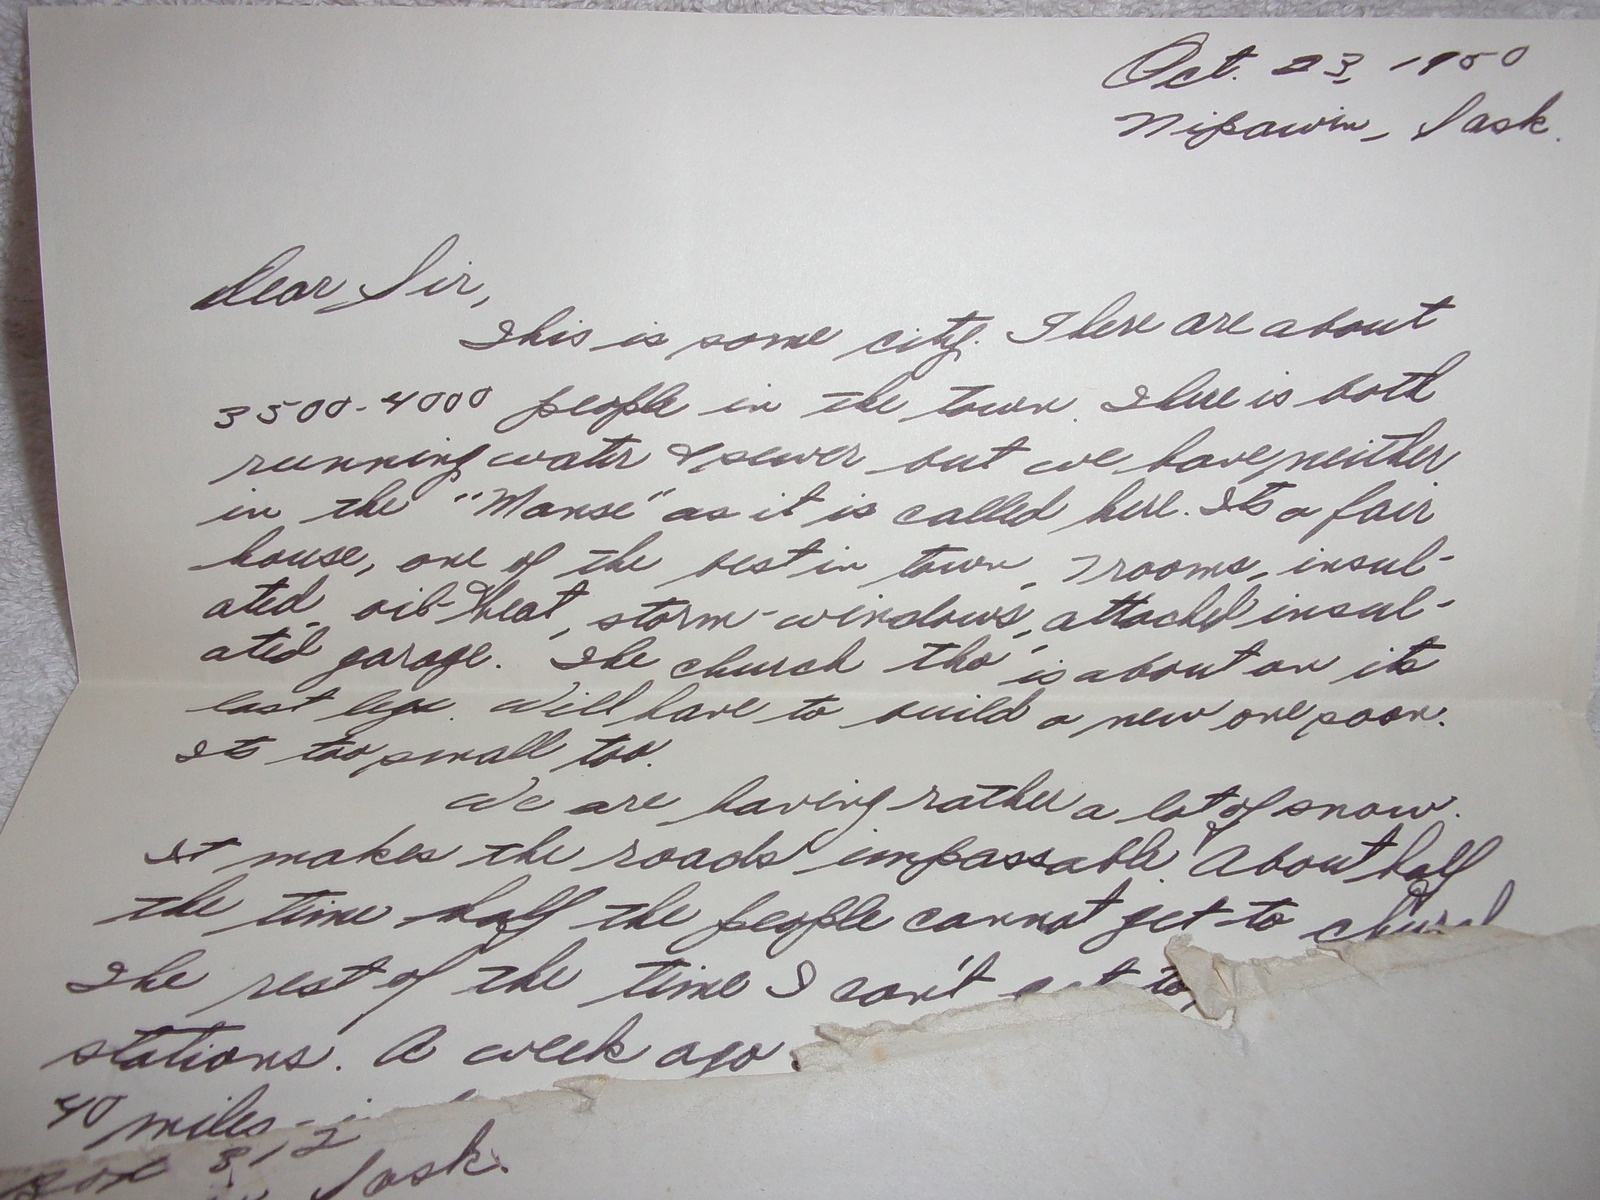 Oct. 23, 1950
Nipawin, Sask.
Dear Sir,
This is some city. There are about
3500-4000 people in the town. There is both
running water & sewer but we have neither
in the "Manse" as it is called here. Its a fair
house, one of the best in town, 7 rooms, insul-
ated, oil-heat, storm-windows, attached insul-
ated garage. The church tho' is about on its
last legs. Will have to build a new one soon.
Its too small too.
We are having rather a lot of snow.
It makes the roads impassable. About half
the time half the people cannot get to church
The rest of the time I can't get to
stations. A week ago
40 miles
Box 312
Sask.